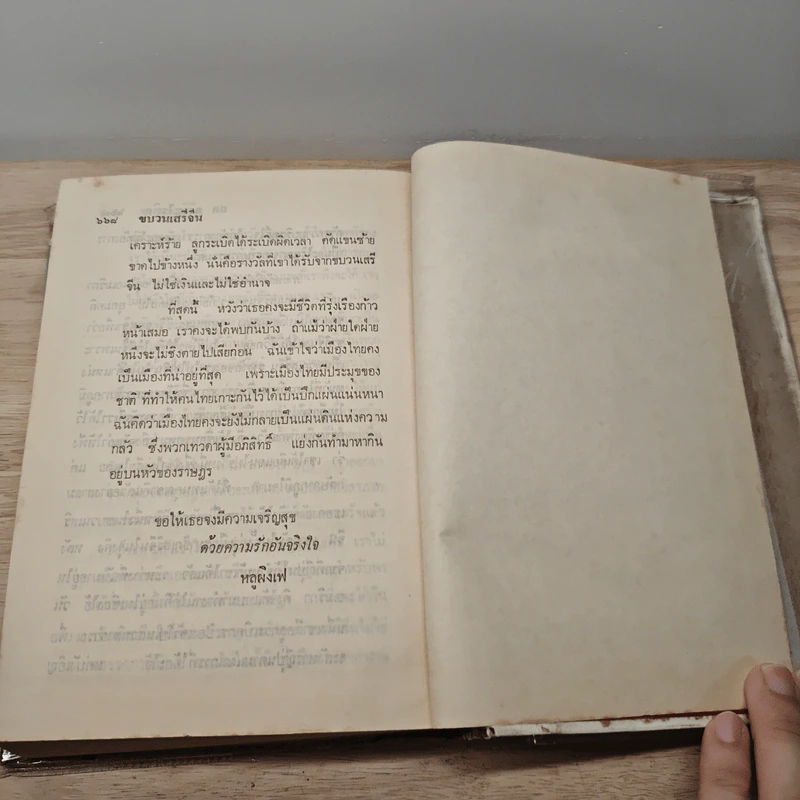 ๖๖๘ ขบวนเสรีจีน
เคราะห์ร้าย ลูกระเบิดได้ระเบิดผิดเวลา ตัดแขนซ้าย
ขาดไปข้างหนึ่ง นั่นคือรางวัลที่เขาได้รับจากขบวนเสรี
จีน ไม่ใช่เงินและไม่ใช่อำนาจ
ที่สุดนี้ หวังว่าเธอคงจะมีชีวิตที่รุ่งเรืองก้าว
หน้าเสมอ เราคงจะได้พบกันบ้าง ถ้าแม้ว่าฝ่ายใดฝ่าย
หนึ่งจะไม่ชิงตายไปเสียก่อน ฉันเข้าใจว่าเมืองไทยคง
เป็นเมืองที่น่าอยู่ที่สุด เพราะเมืองไทยมีประมุขของ
ชาติ ที่ทำให้คนไทยเกาะกันไว้ได้เป็นปึกแผ่นแน่นหนา
ฉันคิดว่าเมืองไทยคงจะยังไม่กลายเป็นแผ่นดินแห่งความ
กลัว ซึ่งพวกเทวดาผู้มีอภิสิทธิ์ แย่งกันทำมาหากิน
อยู่บนหัวของราษฎร
ขอให้เธอจงมีความเจริญสุข
ด้วยความรักอันจริงใจ
หลูผิงเฟ